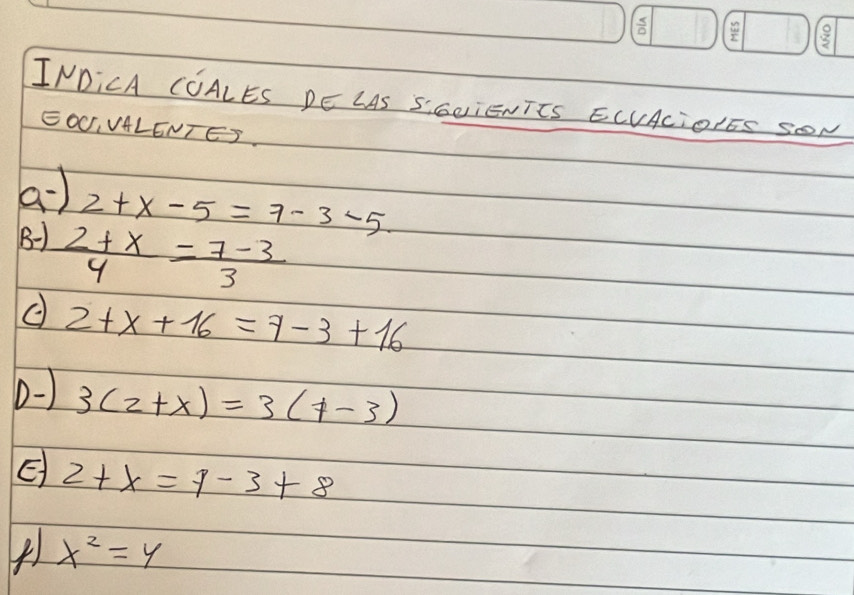 DÍA MES AÑO
INDICA CÚALES DE LAS SIGUIENTES ECUACIONES SON
EQUIVALENTES.
a-) 2+x-5=7-3-5.
B-) \frac{2+x}{4} = \frac{7-3}{3}
C) 2+x+16=7-3+16
D-) 3(2+x)=3(7-3)
E) 2+x=7-3+8
f) x²=4